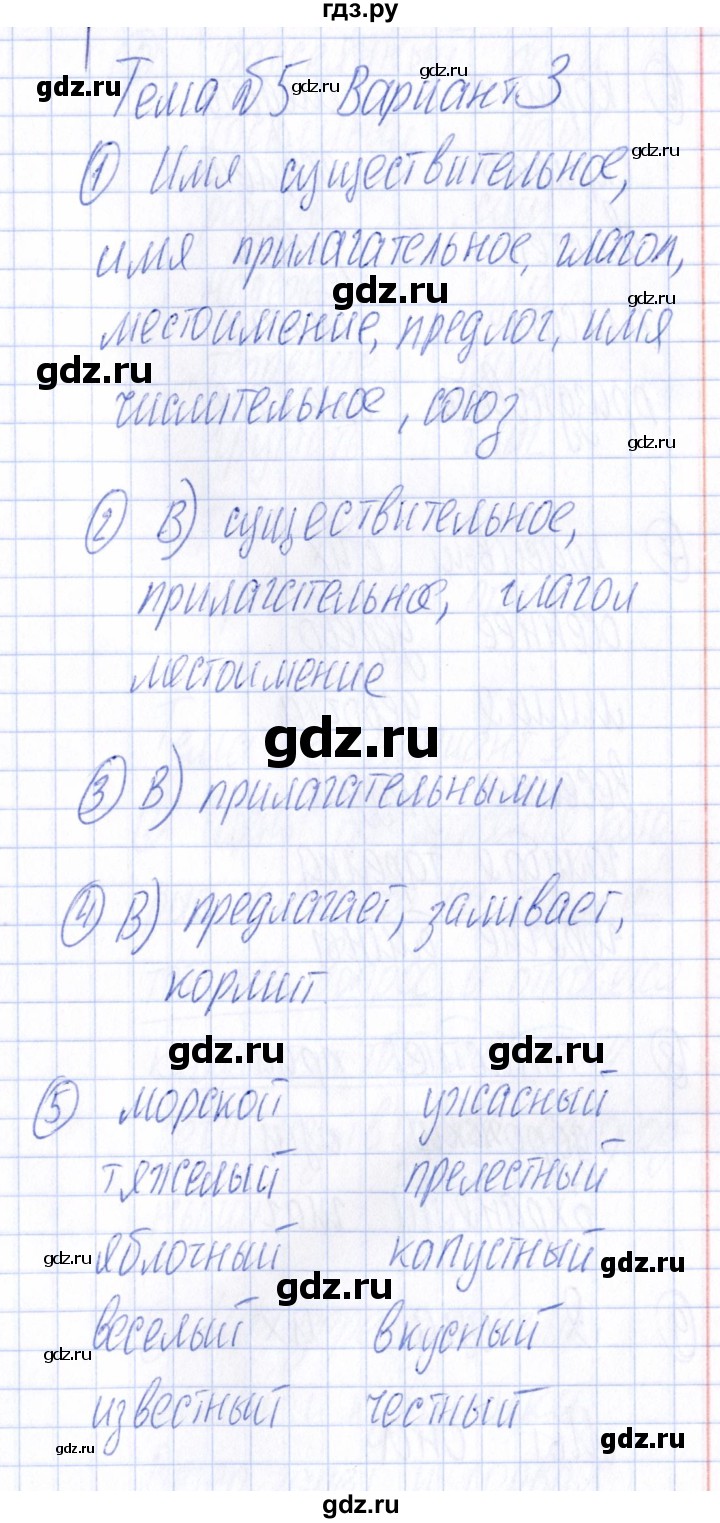 гдз.ру
gdz.ru gdz.ru gdz.ru
Тема №5 Вариант 3
gdz.ru
① Имя существительное,
имя прилагательное, глагол,
gdz.ru gdz.ru
местоимение, предлог, имя
gdz.ru
числительное, союз
gdz.ru
② В) существительное,
прилагательное, глагол
местоимение
gdz.ru
③ В) прилагательными
④ В) предлагает, заливает,
кормит
gdz.ru gdz.ru
⑤ морской ужасный
тяжелый прелестный
яблочный капустный
gdz.ru gdz.ru
gdz.ru
веселый вкусный
gdz.ru
известный честный
gdz.ru gdz.ru
gdz.ru